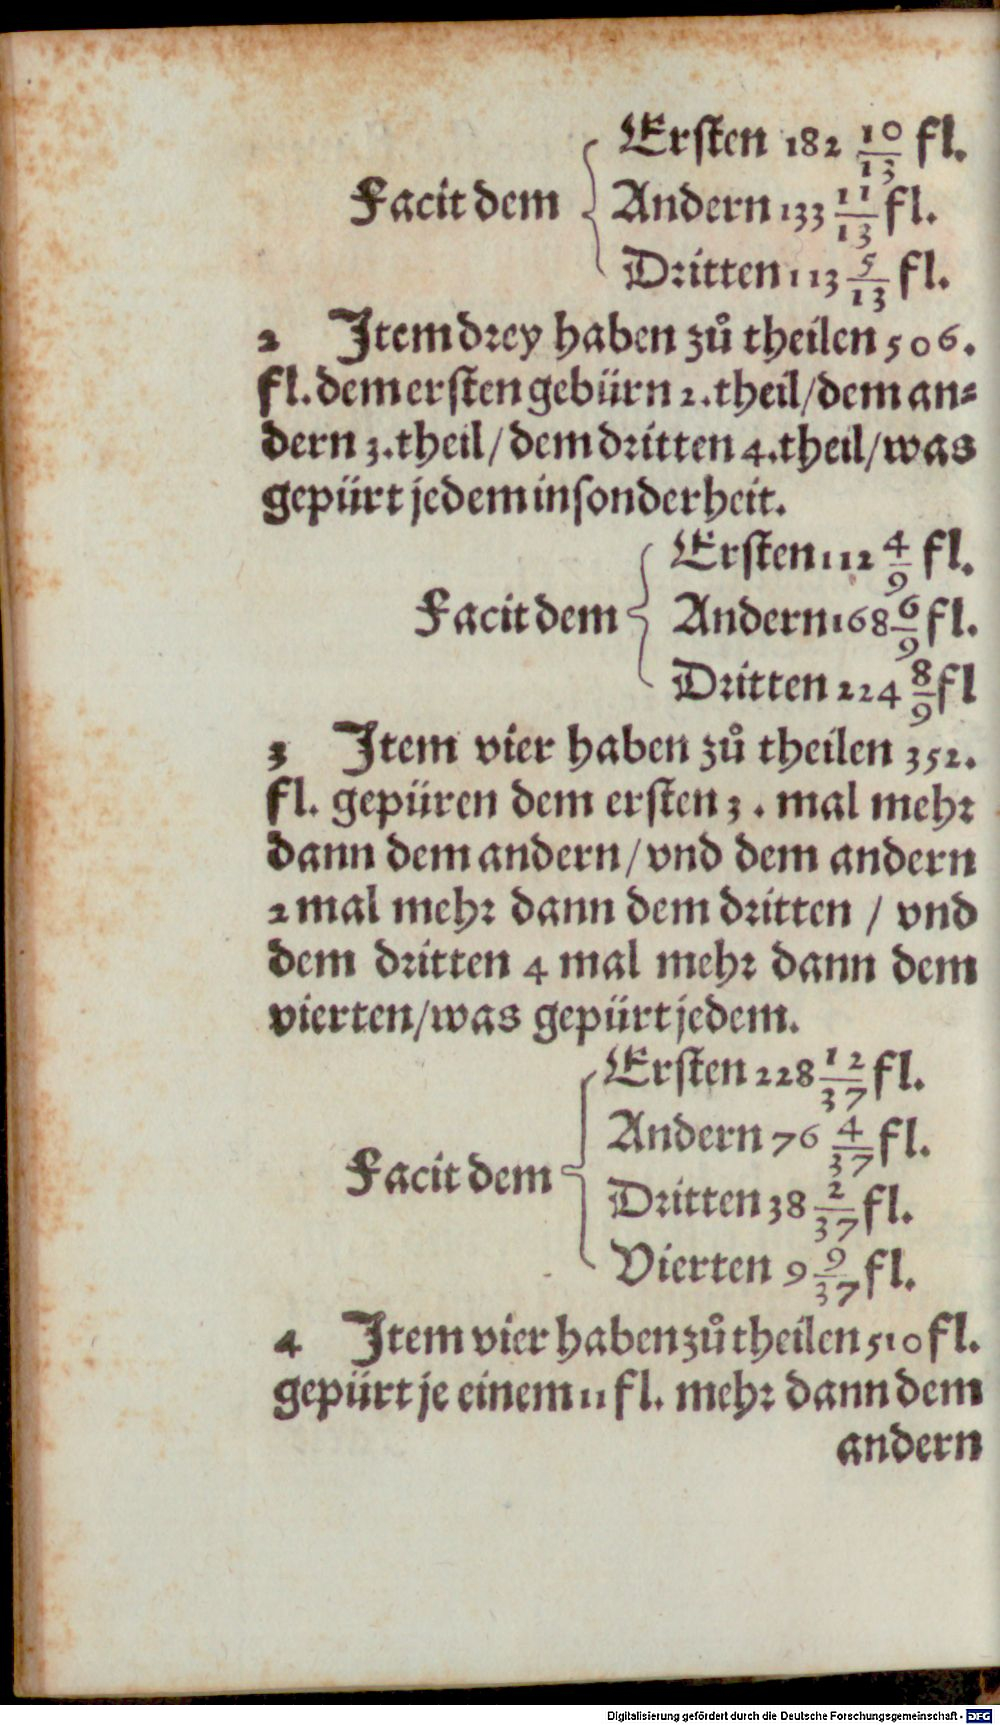 Ersten 182 10/13 fl.
Facit dem Andern 133 11/13 fl.
Dritten 113 5/13 fl.
2 Item drey haben zů theilen 506.
fl. dem ersten gebürn 2. theil/dem an-
dern 3. theil/dem dritten 4. theil/was
gepürt jedem insonderheit.
Ersten 112 4/9 fl.
Facit dem Andern 168 6/9 fl.
Dritten 224 8/9 fl
3 Item vier haben zů theilen 352.
fl. gepüren dem ersten 3. mal mehr
dann dem andern/vnd dem andern
2 mal mehr dann dem dritten / vnd
dem dritten 4 mal mehr dann dem
vierten/was gepürt jedem.
Ersten 228 12/37 fl.
Andern 76 4/37 fl.
Facit dem
Dritten 38 2/37 fl.
Vierten 9 9/37 fl.
4 Item vier haben zů theilen 510 fl.
gepürt je einem 11 fl. mehr dann dem
andern
Digitalisierung gefördert durch die Deutsche Forschungsgemeinschaft - DFG